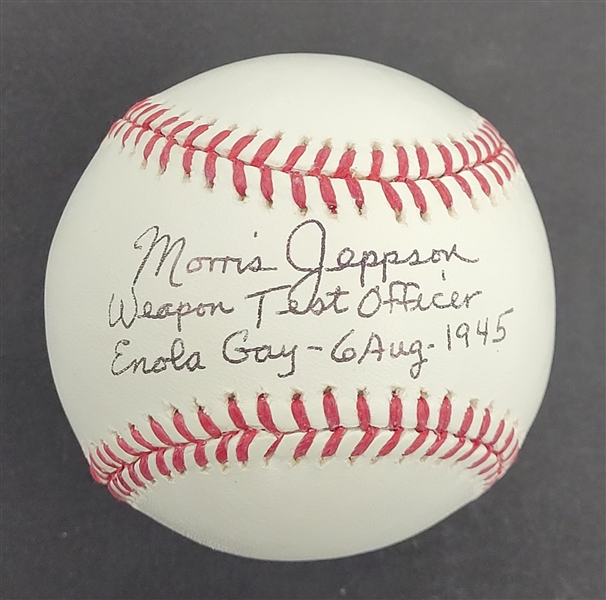 Morris Jeppson
Weapon Test Officer
Enola Gay - 6 Aug. 1945